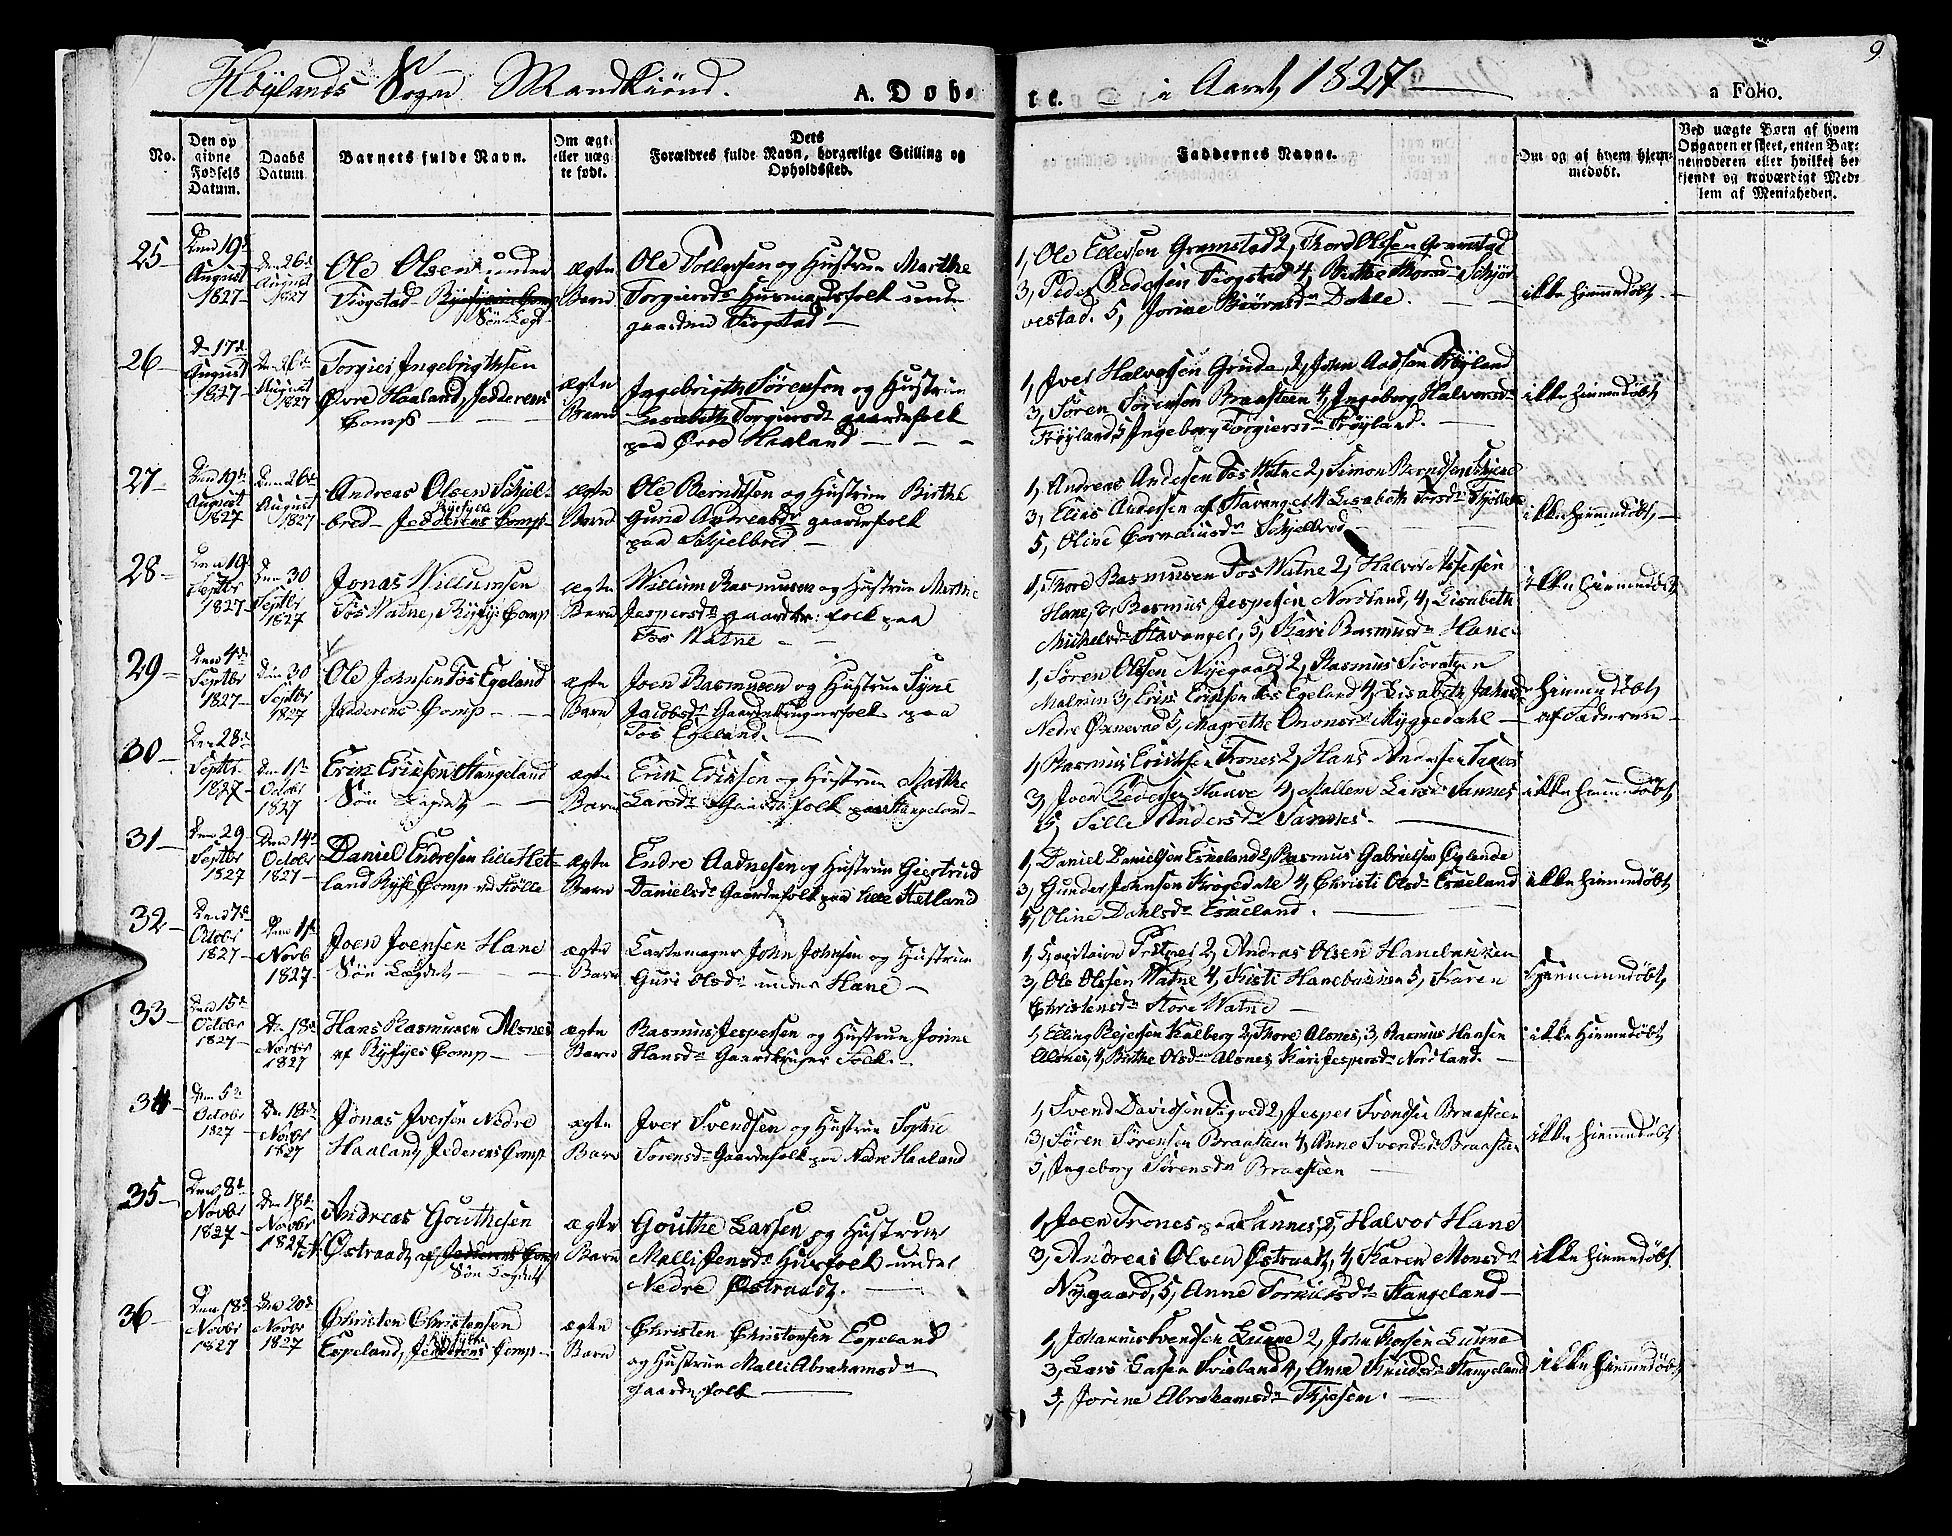 Höylands Sogn Mandkiönd. A. Døb-
te. i Aaret 1827 a Folio. 9
No.
Den op
givne
Fødsels
Datum.
Daabs
Datum
Barnets fulde Navn.
Om ægte
eller uæg-
te født.
Dets
Forældres fulde Navn, borgerlige Stilling og
Opholdssted.
Faddernes Navne.
Om og af hvem hjem-
medøbt.
Ved uægte Børn af hvem
Opgaven er skeet, enten Bar-
nemoderen eller hvilket be-
kjendt og troværdigt Med-
lem af Menigheden.
25
Den 19de
August
1827
Den 26de
August
1827
Ole Olsen under
Tiogstad
Søn Lægd
ægte
Barn
Ole Tollersen og Hustrue Marthe
Torgiersdr Husmandsfolk under
gaarden Tiogstad
1, Ole Ellersen Gramstad 2, Thord Olsen Gramstad
3, Peder Pedersen Tiogstad 4, Birthe Thorsdr Schjör
vestad. 5, Jorine Biörnsdr Dahle.
ikke hiemmedøbt
26
Den 17de
August
1827
Den 26de
August
1827
Torgier Ingebrigthsen
Øvre Haaland, Jedderens
Comp
ægte
Barn
Ingebrigth Sørensen og Hustrue
Lisabeth Torgiersdr gaardsfolk
paa Øvre Haaland
1, Iver Halvorsen Grude, 2, John Aadsen Frøyland
3, Søren Sørensen Braasteen 4, Ingeborg Halvorsdr
Frøyland, 5, Ingeborg Torgiersdr Frøyland.
ikke hiemmedøbt
27
Den 19de
August
1827
Den 26de
August
1827
Andreas Olsen Schjel-
bred Jedderens Comp
Ryfyes
ægte
Barn
Ole Berndtsen og Hustrue Birthe
Guria Andreasdr gaardsfolk
paa Schjelbred
1, Andreas Andersen Fos Watne 2, Simon Berndtsen
3, Elias Andersen af Stavanger 4 Lisabeth
5, Oline Corneliusdr Schjelbred
ikke hiemmedøbt
28
Den 19
Septbr
1827
Den 30
Septbr
1827
Jonas Willumsen
Fos Watne, Ryfyl: Comp
ægte
Barn
Willum Rasmusen og Hustrue Marthe
Jespersdr gaards: folk paa
Fos Watne
1, Thore Rasmusen Fos Watne 2, Halvor
Hane, 3, Rasmus Jespersen Nordland, 4, Lisabeth
Michelsdr Stavanger, 5, Kari Rasmusdr Hane
ikke hiemmedøbt
29
Den 4de
Septbr
1827
Den 30
Septbr
1827
Ole Johnsen Fos Egeland
Jedderens Comp
ægte
Barn
Joen Rasmusen og Hustrue Syne
Jacobsdr Gaardbrugerfolk paa
Fos Egeland.
1, Søren Olsen Nyegaard 2, Rasmus
Malmin 3, Erik Eriksen Fos Egeland 4, Lisabeth
Nedre Øxnevad 5, Magrethe Omonsdr Myggedahl
hiemmedøbt
af Faderen
30
Den 28de
Septbr
1827
Den 1ste
Octobr
1827
Erik Eriksen Stangeland
Søn Lægdet
ægte
Barn
Erik Eriksen og Hustrue Marthe
Larsdr Gaardsfolk paa Stangeland
1, Rasmus Trones 2, Hans Andersen Sannes
3, Joen Pedersen Hauve 4, Mallene Larsdr Sannes
5, Sille Andersdr Sannes.
ikke hiemmedøbt
31
Den 29
Septbr
1827
Den 14de
Octobr
1827
Daniel Endresen lille Het-
land Ryfl Comp
ægte
Barn
Endre Aadnesen og Hustrue Giertrud
Danielsdr Gaardsfolk paa lille Hetland
1, Daniel Danielsen Eskeland 2, Rasmus Gabrielsen
3, Gunder Johnsen Krogedahl 4, Christi Olsdr Eskeland
5, Oline Dahlsdr Eskeland.
ikke hiemmedøbt
32
Den 7de
Octobr
1827
Den 1ste
Novb
1827
Joen Joensen Hane
Søn Lægdet
ægte
Barn
Cartemager John Johnsen og Hustrue
Guri Olsdr under Hane
1, Capitaine 2, Andreas Olsen Hanebakken
3, Ole Olsen Watne 4, Kisti Hanebakken 5, Karen
Christensdr Store Watne
hiemmedøbt
33
Den 15de
Octobr
1827
Den 18de
Novbr
1827
Hans Rasmusen Alsnes
af Ryfyes Comp
ægte
Barn
Rasmus Jespersen og Hustrue Jorine
Hansdr Gaardbruger Folk
1, Elling Reiersen Kalberg 2, Thore Alsnes, 3, Rasmus Hansen
Alsnes, 4, Birthe Olsdr Alsnes Kari Jespersdr Nordland.
ikke hiemmedøbt
34
Den 5te
Octobr
1827
Den 18de
Novbr
1827
Jonas Iversen Nedre
Haaland, Jederens Comp
ægte
Barn
Iver Svendsen og Hustrue Sophie
Sørensdr Gaardsfolk paa Nedre Haaland
1, Svend Davidsen 2, Jesper Svendsen Braasteen
3, Søren Sørensen Braasteen 4, Anne Svendsdr Braasteen
5, Ingeborg Sørensdr Braasteen
ikke hiemmedøbt
35
Den 8de
Novbr
1827
Den 18de
Novbr
1827
Andreas Gouthesen
Østraadt af Jedderens Comp
Søn Lægdet
ægte
Barn
Gouthe Larsen og Hustrue
Malli Jensdr Huusfolk under
Nedre Østraadt.
1, Joen Trones paa Sannes, 2, Halvor Hane
3, Andreas Olsen Østraadt, 4, Karen Monsdr
Nygaard, 5, Anne Stangeland
ikke hiemmedøbt
36
Den 18de
Novbr
1827
Den 20de
Novbr
1827
Christen Christensen
Espeland, Jedderens Comp
Ryfylke
ægte
Barn
Christen Christensen Espeland
og Hustrue Malli Abrahamsdr
gaardsfolk
1, Johannes Svendsen Lunne 2, John Lunne
3, Lars Larsen 4, Anne Knudsdr Stangeland
5, Jorine Abrahamsdr
ikke hiemmedøbt